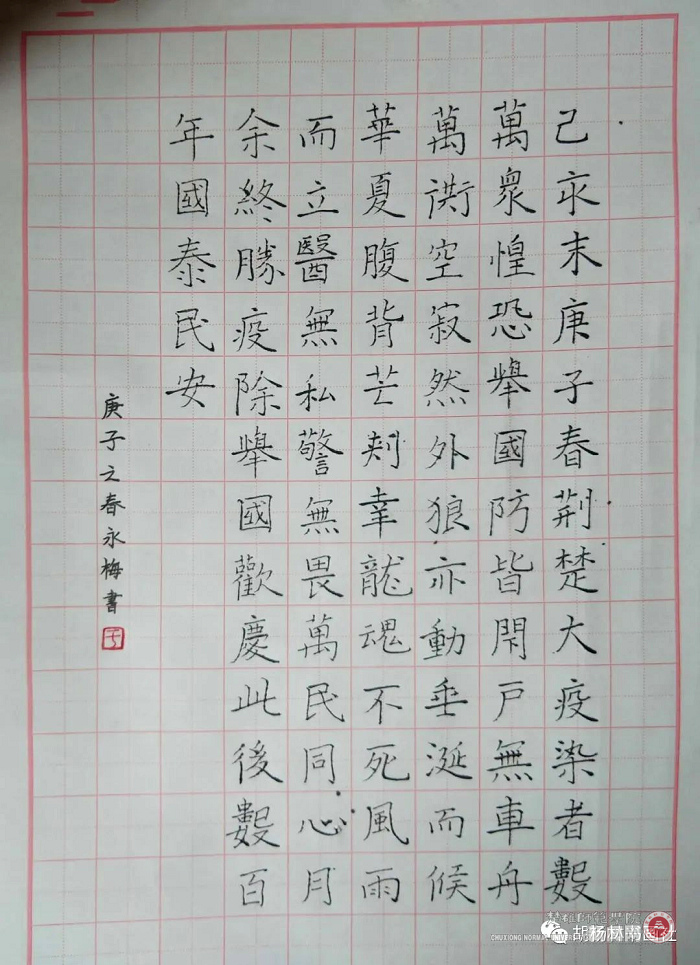 己亥末庚子春荆楚大疫染者數
萬衆惶恐舉國防皆閉戶無車舟
萬衖空寂然外狼亦動垂涎而候
華夏腹背芒刺幸龍魂不死風雨
而立醫無私警無畏萬民同心月
余終勝疫除舉國歡慶此後數百
年國泰民安
庚子之春永梅書
CHUXIONG NORMAL UNIVERSITY
胡杨林书画社